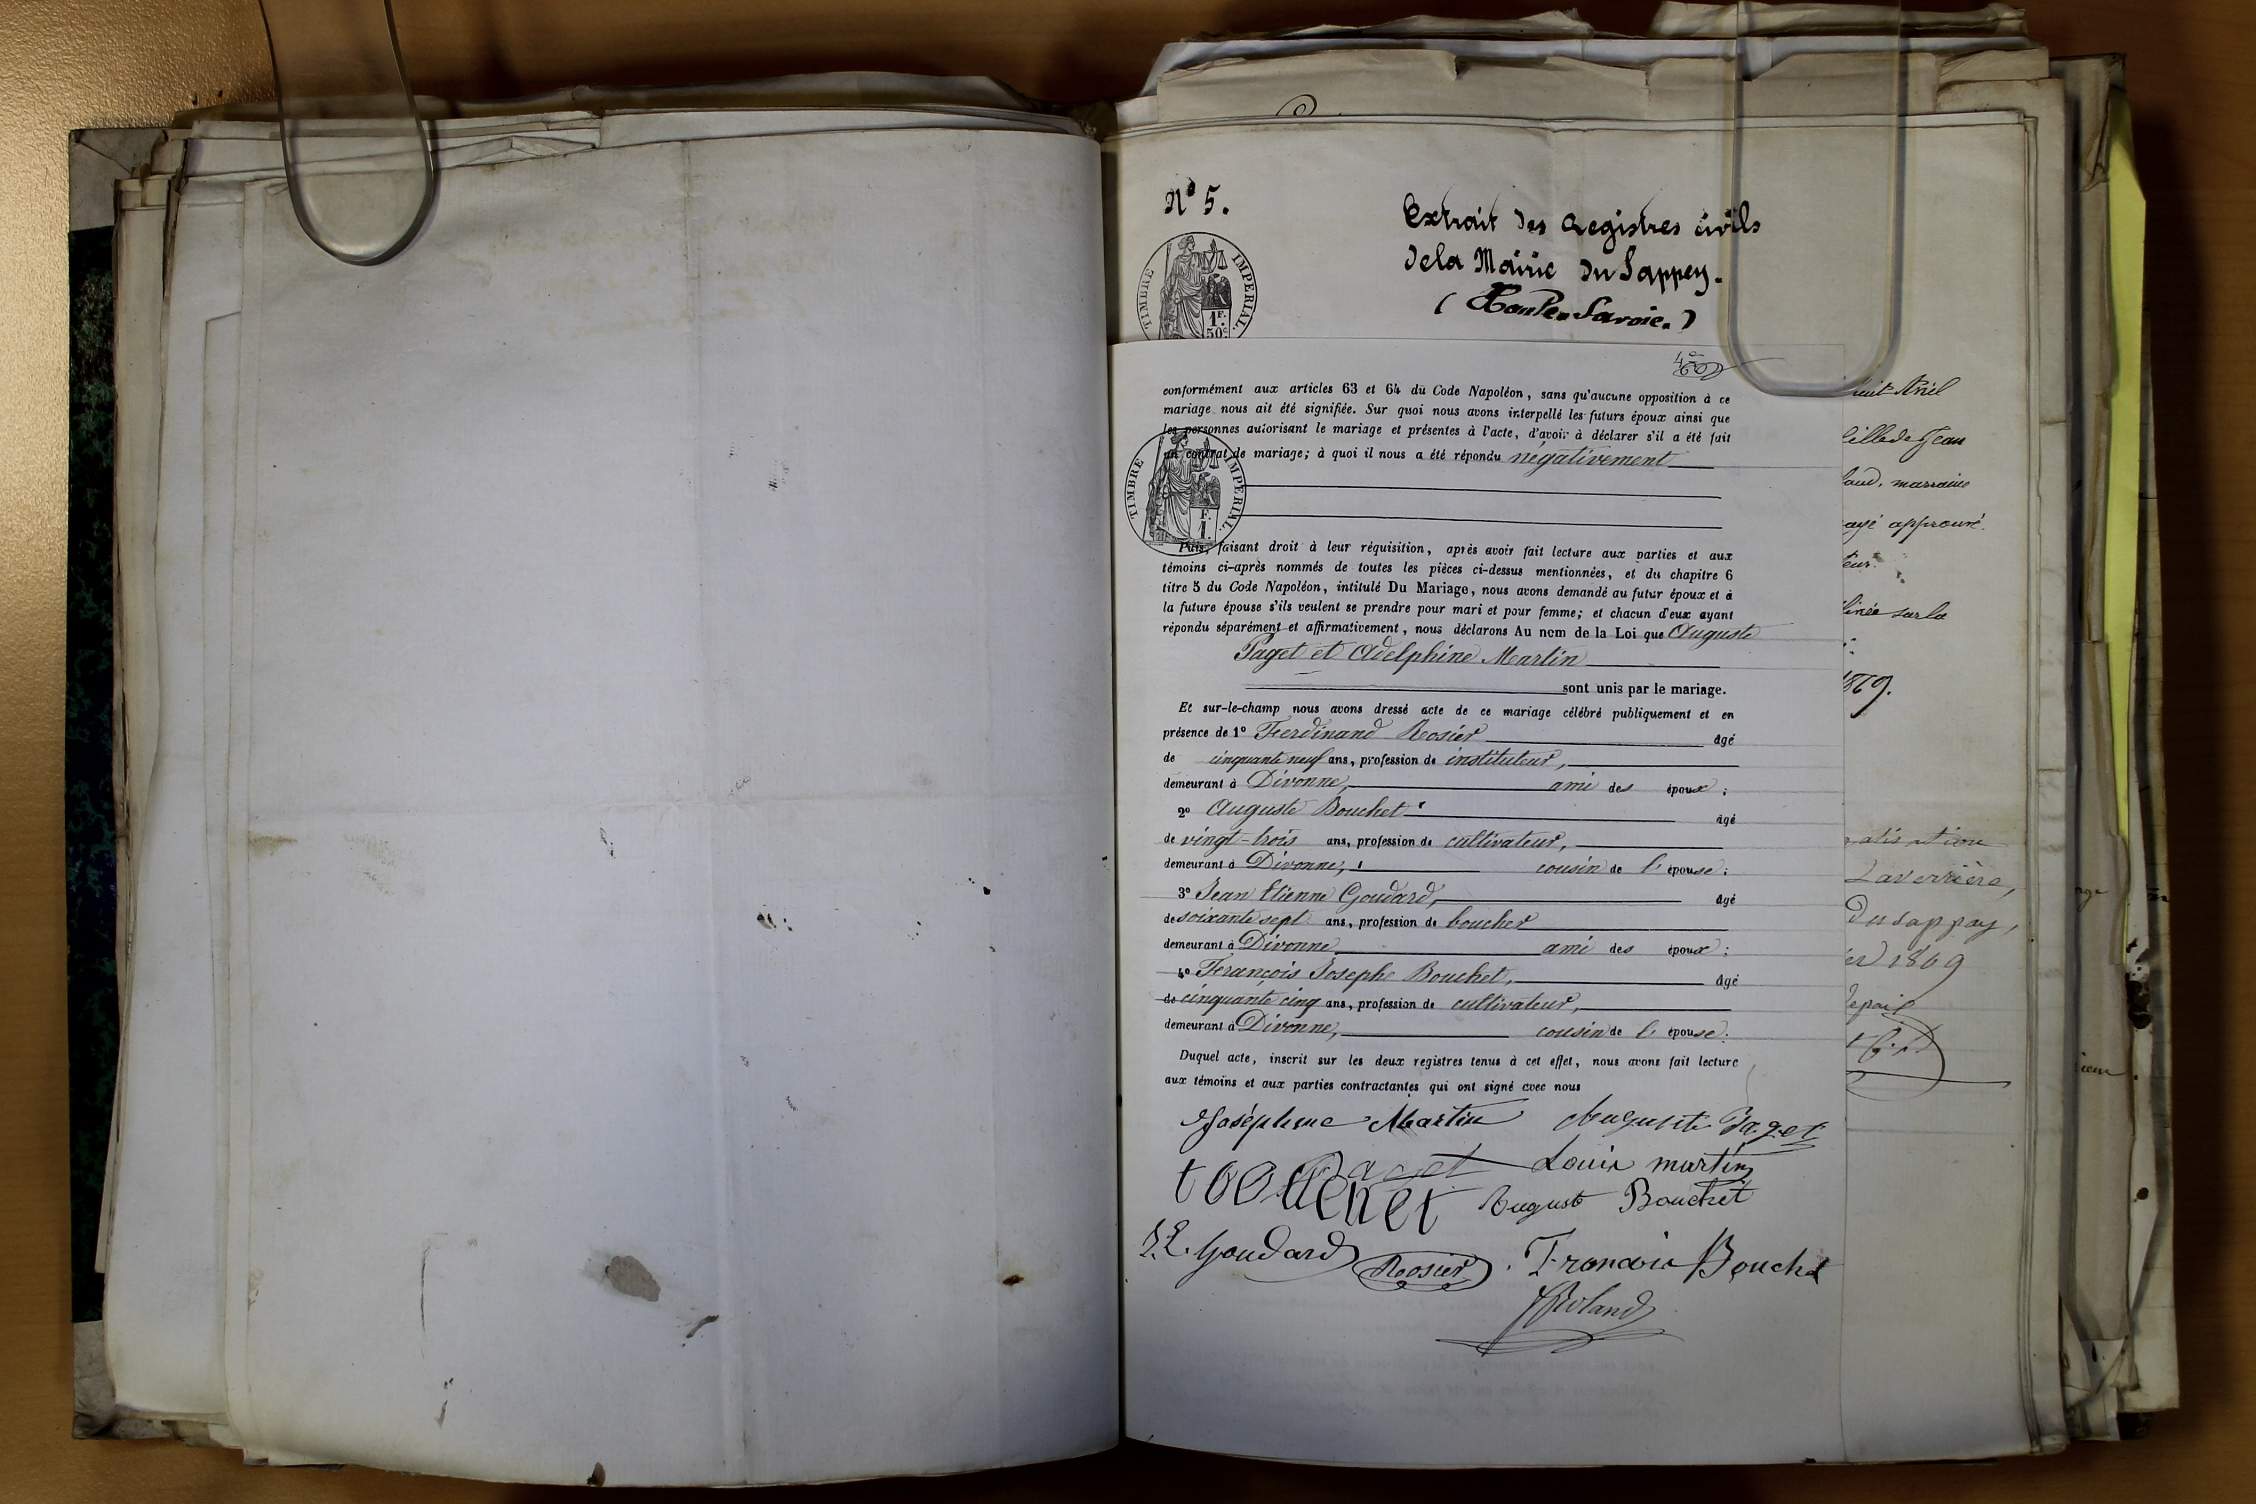 Nº 5.
Extrait des Registres civils
de la Mairie du Sappey.
(Haute-Savoie.)
TIMBRE IMPERIAL.
1F.
50c
conformément aux articles 63 et 64 du Code Napoléon, sans qu'aucune opposition à ce
mariage nous ait été signifiée. Sur quoi nous avons interpellé les futurs époux ainsi que
les personnes autorisant le mariage et présentes à l'acte, d'avoir à déclarer s'il a été fait
un contrat de mariage; à quoi il nous a été répondu négativement
TIMBRE IMPERIAL.
F.
1.
Puis, faisant droit à leur réquisition, après avoir fait lecture aux parties et aux
témoins ci-après nommés de toutes les pièces ci-dessus mentionnées, et du chapitre 6
titre 5 du Code Napoléon, intitulé Du Mariage, nous avons demandé au futur époux et à
la future épouse s'ils veulent se prendre pour mari et pour femme; et chacun d'eux ayant
répondu séparément et affirmativement, nous déclarons Au nom de la Loi que Auguste
Paget et Adelphine Martin
sont unis par le mariage.
Et sur-le-champ nous avons dressé acte de ce mariage célébré publiquement et en
présence de 1º Ferdinand Rosier âgé
de cinquante neuf ans, profession de instituteur,
demeurant à Divonne, ami des époux;
2º Auguste Bouchet âgé
de vingt-trois ans, profession de cultivateur,
demeurant à Divonne, cousin de l'épouse;
3º Jean Etienne Goudard, âgé
de soixante sept ans, profession de boucher
demeurant à Divonne ami des époux;
4º François Josephe Bouchet, âgé
de cinquante cinq ans, profession de cultivateur,
demeurant à Divonne, cousin de l'épouse;
Duquel acte, inscrit sur les deux registres tenus à cet effet, nous avons fait lecture
aux témoins et aux parties contractantes qui ont signé avec nous
Joséphine Martin Auguste Paget
Paget Louis martin
August Bouchet
J. E. Goudard Rosier François Bouche
Roland
fille de Jean
marraine
rayé approuvé.
sur la
1869.
Laverrière,
Du sappay,
1869